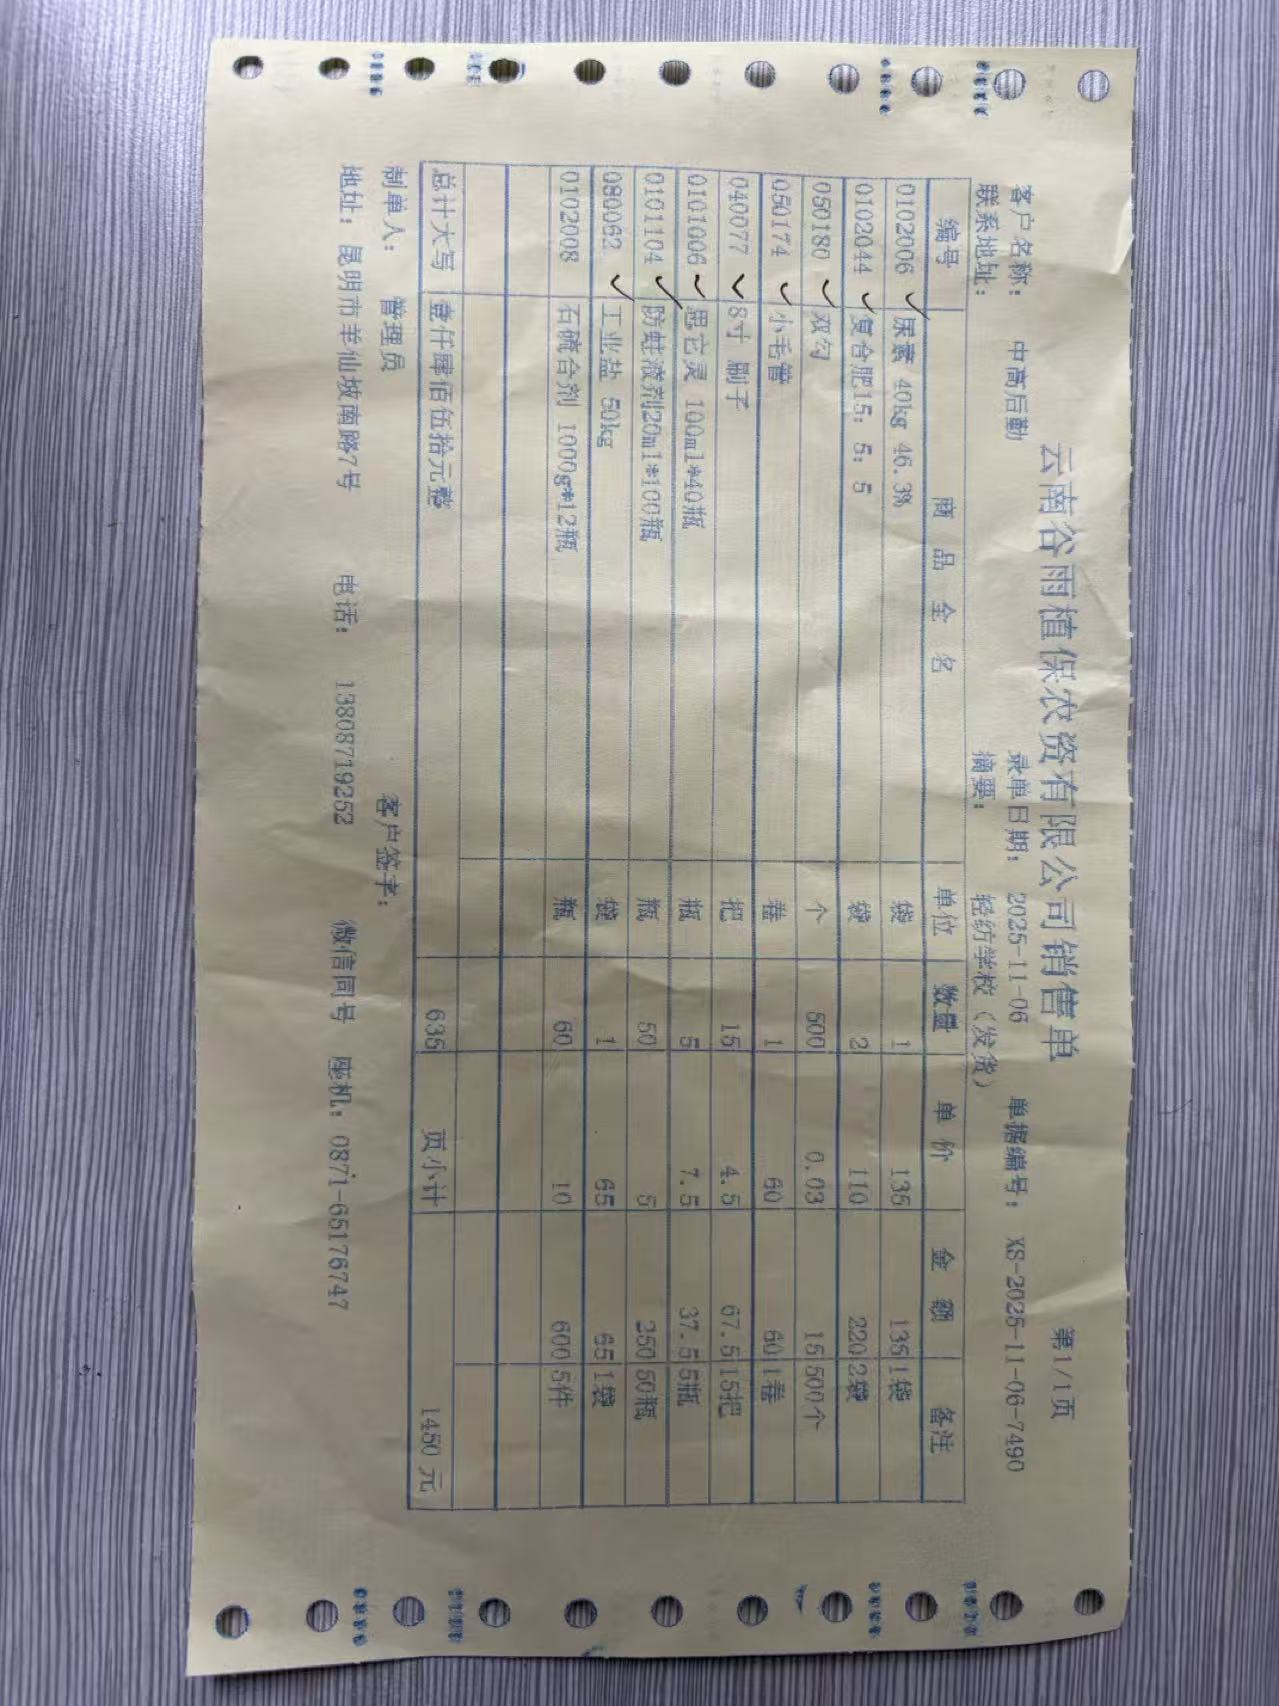 云南谷雨植保农资有限公司销售单 第1/1页
客户名称： 中高后勤 录单日期： 2025-11-06 单据编号： XS-2025-11-06-7490
联系地址： 摘要： 轻纺学校（发货）
编号 商品全名 单位 数量 单价 金额 备注
0102006 尿素 40kg 46.3% 袋 1 135 135 1袋
0102044 复合肥15：5：5 袋 2 110 220 2袋
050180 双勾 个 500 0.03 15 500个
050174 小毛管 卷 1 60 60 1卷
040077 8寸 刷子 把 15 4.5 67.5 15把
0101006 思它灵 100ml*40瓶 瓶 5 7.5 37.5 5瓶
0101104 防蛀液剂20ml*100瓶 瓶 50 5 250 50瓶
080062 工业盐 50kg 袋 1 65 65 1袋
0102008 石硫合剂 1000g*12瓶 瓶 60 10 600 5件
总计大写 壹仟肆佰伍拾元整 635 页小计 1450 元
制单人： 管理员 客户签字：
地址： 昆明市羊仙坡南路7号 电话： 13808719252 微信同号 座机： 0871-65176747